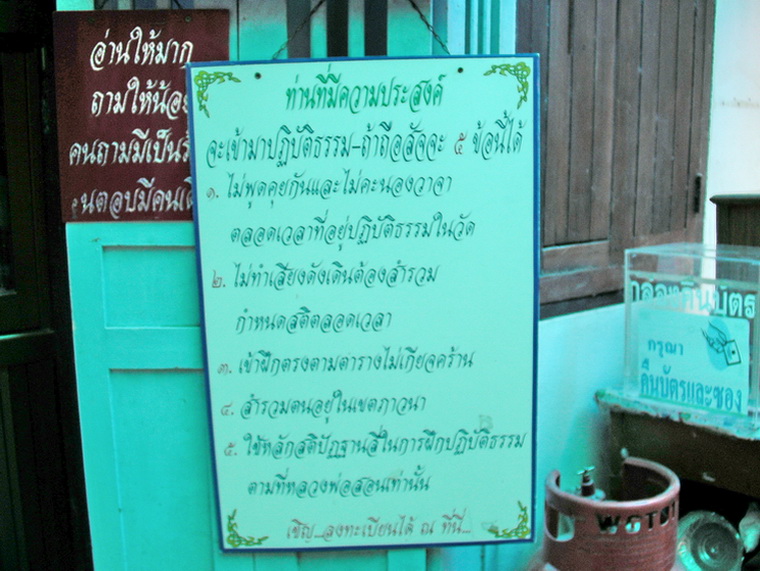 อ่านให้มาก
ถามให้น้อย
คนถามมีเป็น
ตอบมีคน
ท่านที่มีความประสงค์
จะเข้ามาปฏิบัติธรรม-ถ้าถือสัจจะ ๕ ข้อนี้ได้
๑. ไม่พูดคุยกันและไม่คะนองวาจา
ตลอดเวลาที่อยู่ปฏิบัติธรรมในวัด
๒. ไม่ทำเสียงดังเดินต้องสำรวม
กำหนดสติตลอดเวลา
๓. เข้าฝึกตรงตามตารางไม่เกียจคร้าน
๔. สำรวมตนอยู่ในเขตภาวนา
๕. ใช้หลักสติปัฏฐานสี่ในการฝึกปฏิบัติธรรม
ตามที่หลวงพ่อสอนเท่านั้น
เชิญ...ลงทะเบียนได้ ณ ที่นี่...
กรุณา
คืนบัตรและซอง